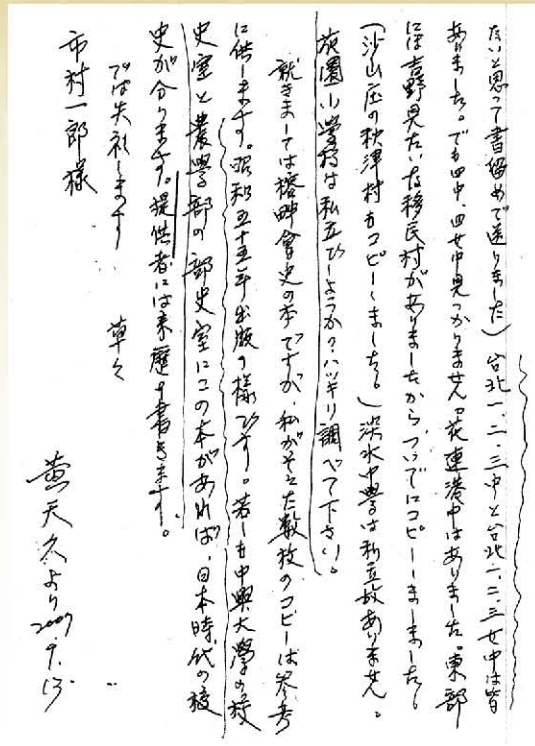 たいと思って書留めで送りました）台北一、二、三中と台北一、二、三女中は皆
ありました。でも四中、四女中見つかりません。花連港中はありました。東部
には吉野見たいな移民村がありましたから、ついでにコピーしました。
（沙山庄の秋津村もコピーしました。）淡水中學は私立故ありません。
旅團小學校は私立でしょうか？ハッキリ調べて下さい。
就きましては榕畔會史の本ですが、私がそえた数枚のコピーは参考
に供します。昭和五十五年出版の様です。若しも中興大學の校
史室と農學部の部史室にこの本があれば、日本時代の校
史が分ります。提供者には来歴を書きます。
では失礼します
草々
市村一郎様
黄天久より 2007 9.13